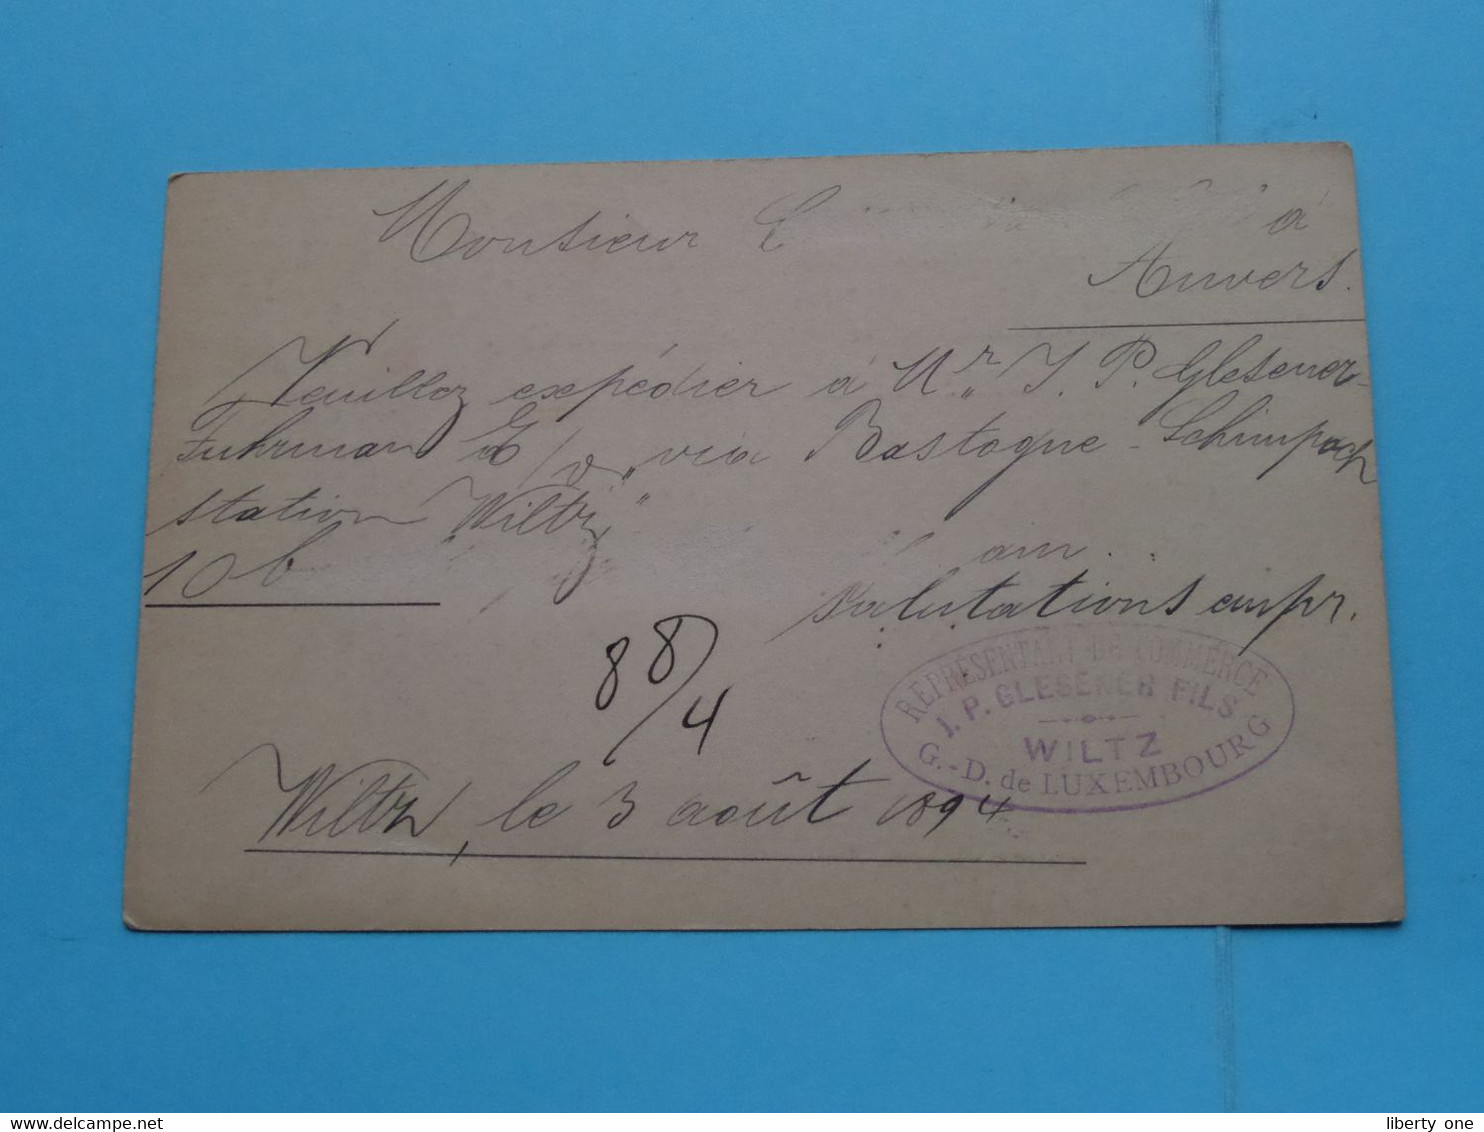 Monsieur à
Anvers.
Veuillez expédier à Mr. J. P. Glesener-
Fuhrman via Bastogne - Schimpach
station "Wiltz"
10 b
salutations empr.
8 8/4
REPRÉSENTANT DE COMMERCE
J. P. GLESENER FILS
WILTZ
G.-D. de LUXEMBOURG
Wiltz, le 3 août 1894
liberty one